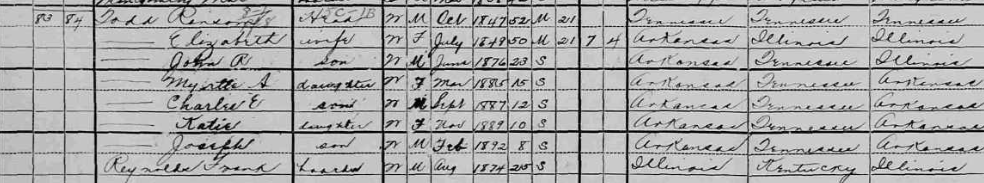 83 84 Todd Ransom Head W M Oct 1847 52 M 21 Tennessee Tennessee Tennessee
— Elizabeth wife W F July 1849 50 M 21 7 4 Arkansas Illinois Illinois
— John R son W M June 1876 23 S Arkansas Tennessee Illinois
— Myrtle A daughter W F Mar 1885 15 S Arkansas Tennessee Arkansas
— Charlie E son W M Sept 1887 12 S Arkansas Tennessee Arkansas
— Katie daughter W F Nov 1889 10 S Arkansas Tennessee Arkansas
— Joseph son W M Feb 1892 8 S Arkansas Tennessee Arkansas
Reynolds Frank boarder W M Aug 1874 25 S Illinois Kentucky Illinois